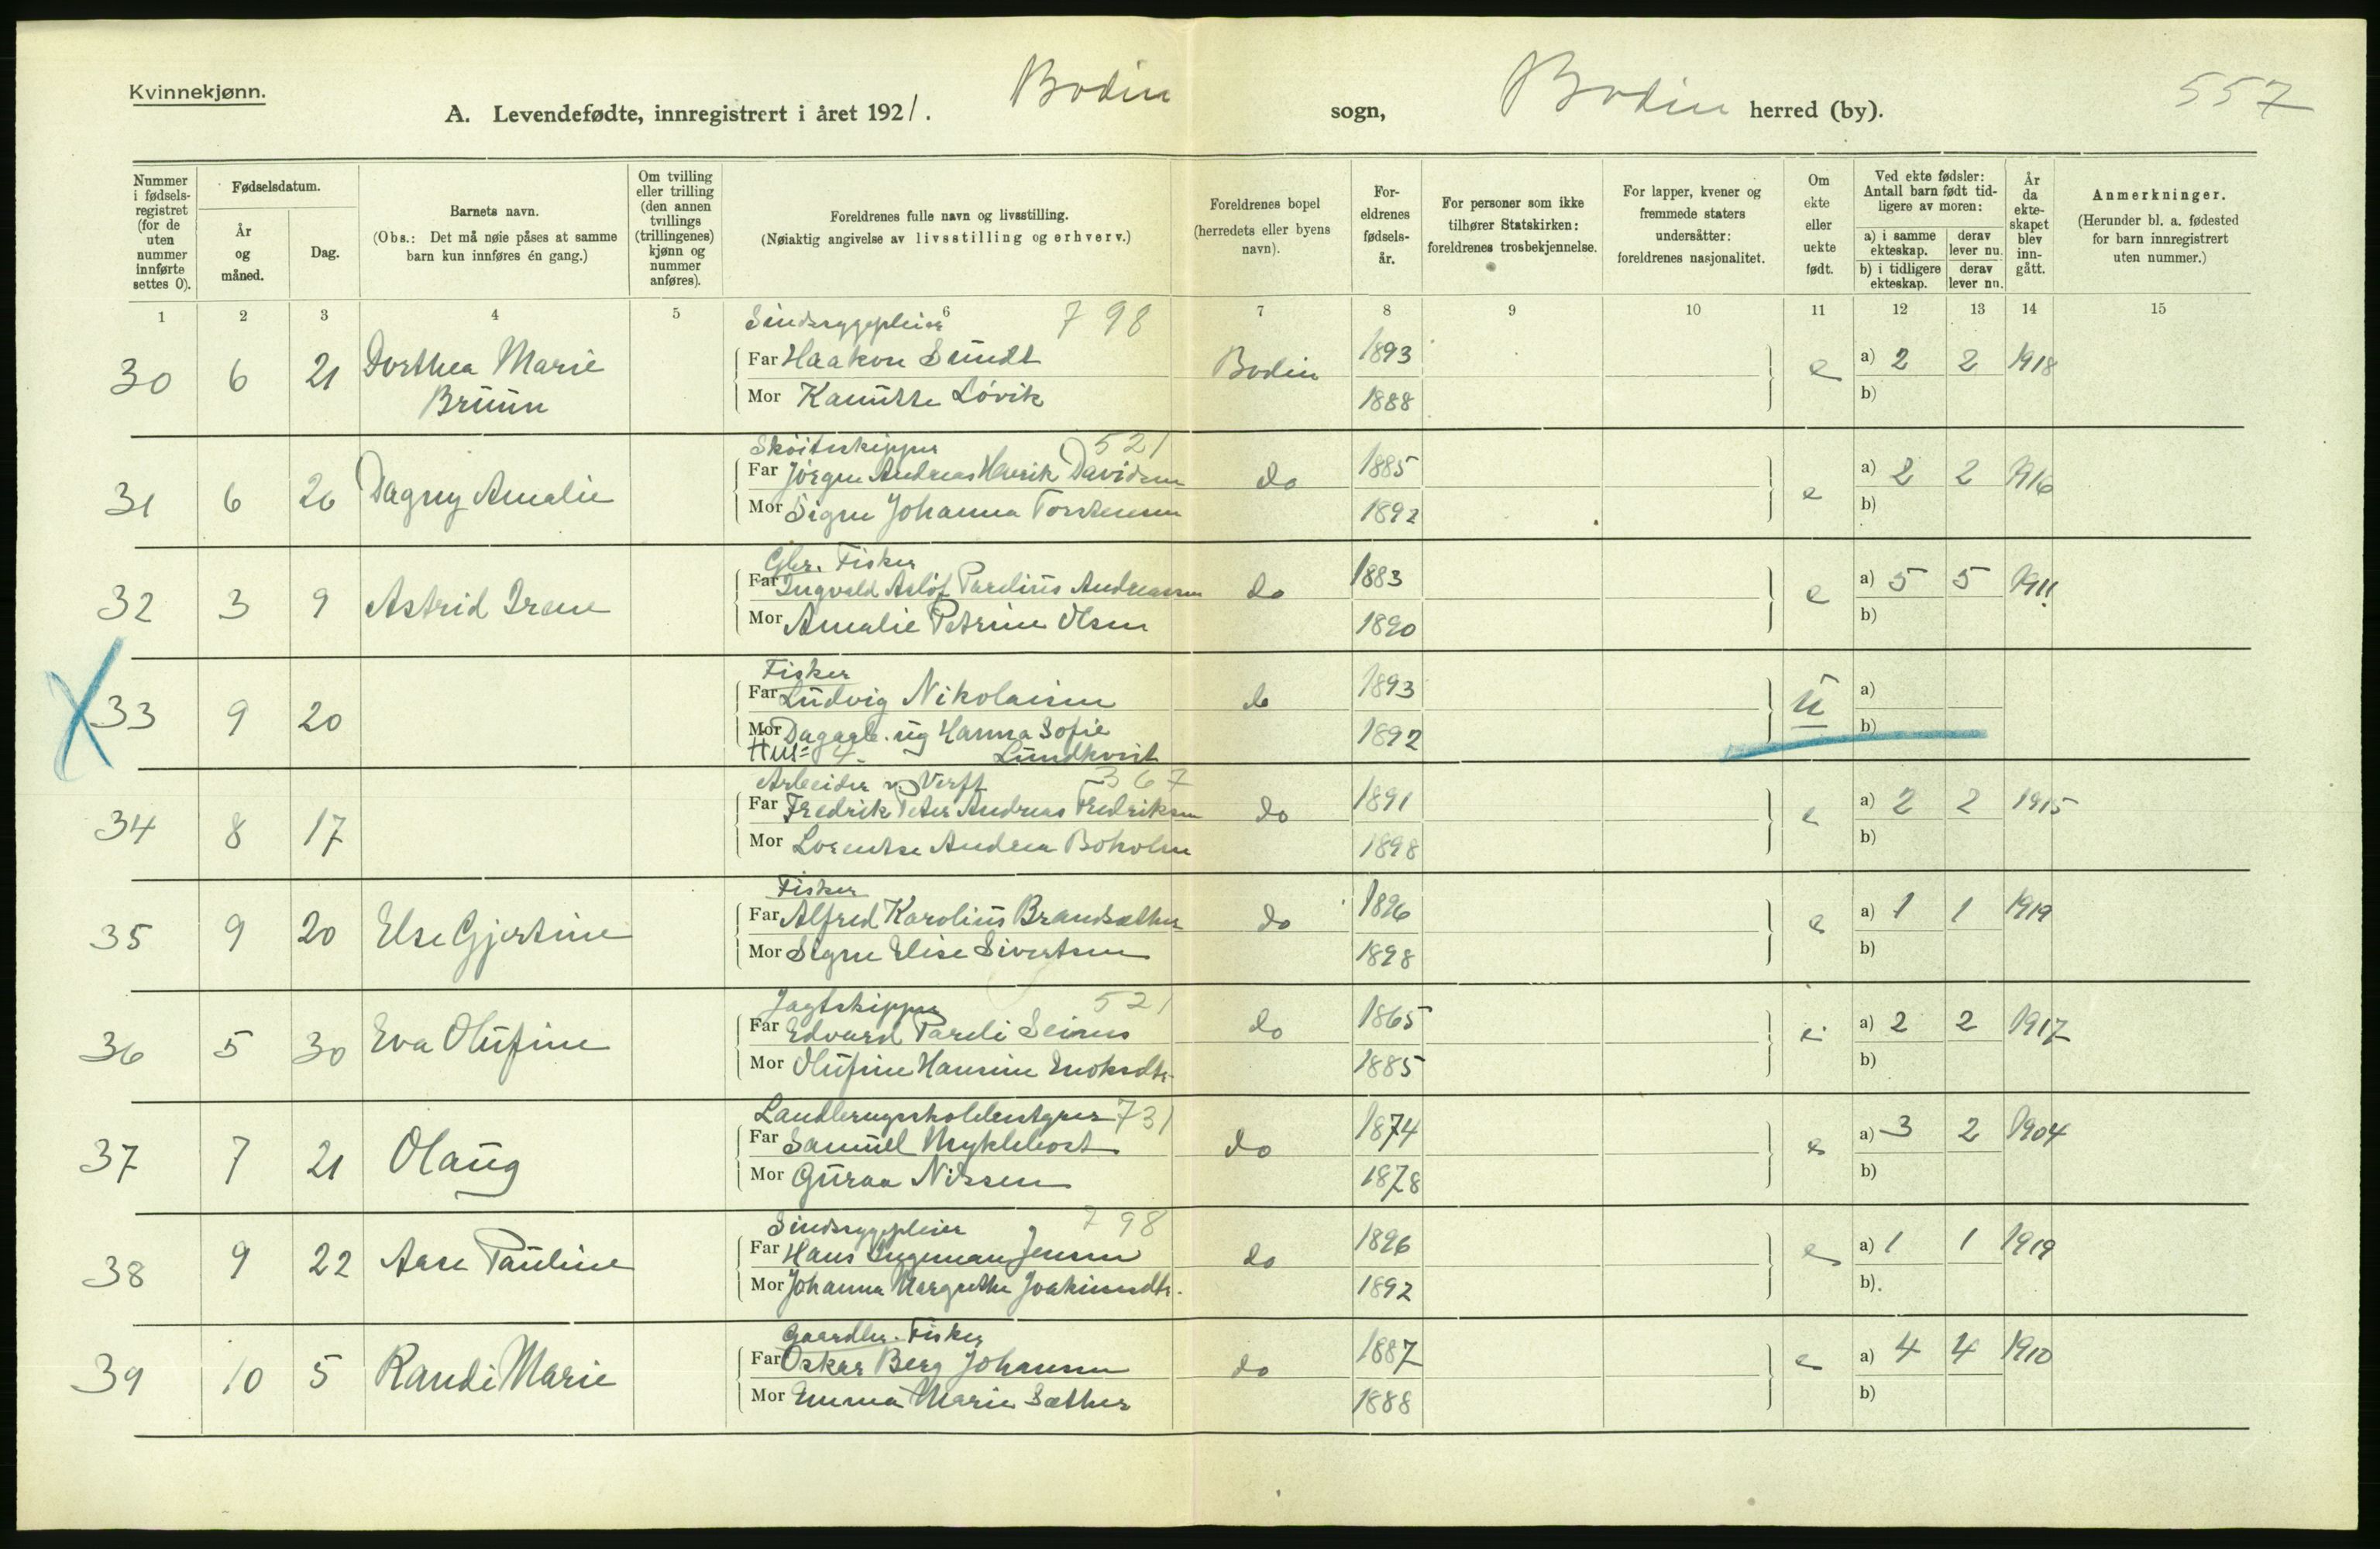 Kvinnekjønn.
A. Levendefødte, innregistrert i året 1921. Bodin sogn, Bodin herred (by). 557
Nummer i fødsels-registret (for de uten nummer innførte settes 0).
Fødselsdatum.
År og måned.
Dag.
Barnets navn.
(Obs.: Det må nøie påses at samme barn kun innføres én gang.)
Om tvilling eller trilling (den annen tvillings (trillingenes) kjønn og nummer anføres).
Foreldrenes fulle navn og livsstilling.
(Nøiaktig angivelse av livsstilling og erhverv.)
Foreldrenes bopel (herredets eller byens navn).
For-eldrenes fødsels-år.
For personer som ikke tilhører Statskirken: foreldrenes trosbekjennelse.
For lapper, kvener og fremmede staters undersåtter: foreldrenes nasjonalitet.
Om ekte eller uekte født.
Ved ekte fødsler: Antall barn født tid-ligere av moren:
a) i samme ekteskap. derav lever nu.
b) i tidligere ekteskap. derav lever nu.
År da ekte-skapet blev inn-gått.
Anmerkninger.
(Herunder bl. a. fødested for barn innregistrert uten nummer.)
1 2 3 4 5 6 7 8 9 10 11 12 13 14 15
Sindssygepleier 798
30 6 21 Dorthea Marie Far Haakon Sundt Bodin 1893 e a) 2 2 1918
Bruun Mor Kanutte Løvik 1888 b)
Skøiteskipper 521
31 6 26 Dagny Amalie Far Jørgen Andreas Henrik Davidsen do 1885 e a) 2 2 1916
Mor Signe Johanna Torstensen 1892 b)
Gbr. Fisker
32 3 9 Astrid Irene Far Ingvald Asløf Parelius Andreassen do 1883 e a) 5 5 1911
Mor Amalie Petrine Olsen 1890 b)
Fisker
33 9 20 Far Ludvig Nikolaisen do 1893 u a)
Mor Dagarb. ug Hanna Sofie 1892 b)
Lundkvist
Arbeider v Verft 367
34 8 17 Far Fredrik Peter Andreas Fredriksen do 1891 e a) 2 2 1915
Mor Lorentse Andrea Boholm 1898 b)
Fisker
35 9 20 Else Gjertine Far Alfred Karolius Brandsæther do 1896 e a) 1 1 1919
Mor Signe Elise Sivertsen 1898 b)
Jagtskipper 521
36 5 30 Eva Olufine Far Edvard Pareli Seines do 1865 e a) 2 2 1917
Mor Olufine Hansine Enoksdtr. 1885 b)
Landbrugsskolebestyrer 731
37 7 21 Olaug Far Samuel Myklebost do 1874 e a) 3 2 1904
Mor Guraa Nilssen 1878 b)
Sindssygepleier 798
38 9 22 Aase Pauline Far Hans Ingeman Jensen do 1896 e a) 1 1 1919
Mor Johanna Margrethe Joakimsdtr. 1892 b).
Gaardbr. Fisker
39 10 5 Randi Marie Far Oskar Berg Johansen do 1887 e a) 4 4 1910
Mor Emma Marie Sæther 1888 b)